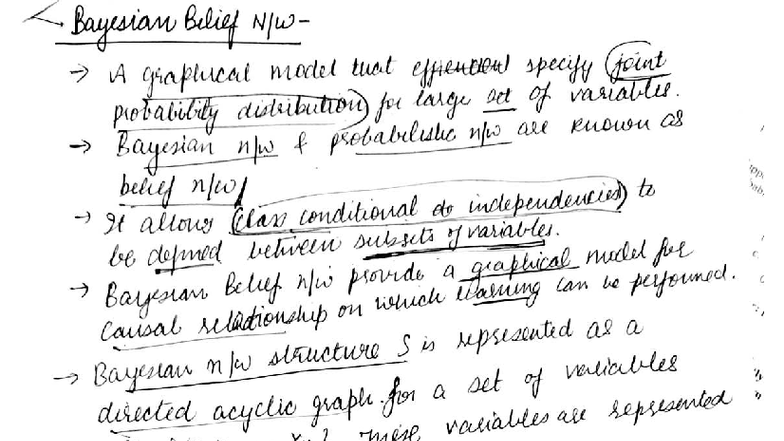 Bayesian Belief N/w-
→ A graphical model that efficient specify joint
probability distribution for large set of variables.
→ Bayesian n/w & probabilistic n/w are known as
belief n/w
→ It allows class conditional do independencies to
be defined between subsets of variables.
→ Bayesian Belief n/w provide a graphical model for
causal relationship on which learning can be performed.
→ Bayesian n/w structure S is represented as a
directed acyclic graph for a set of variables
These variables are represented